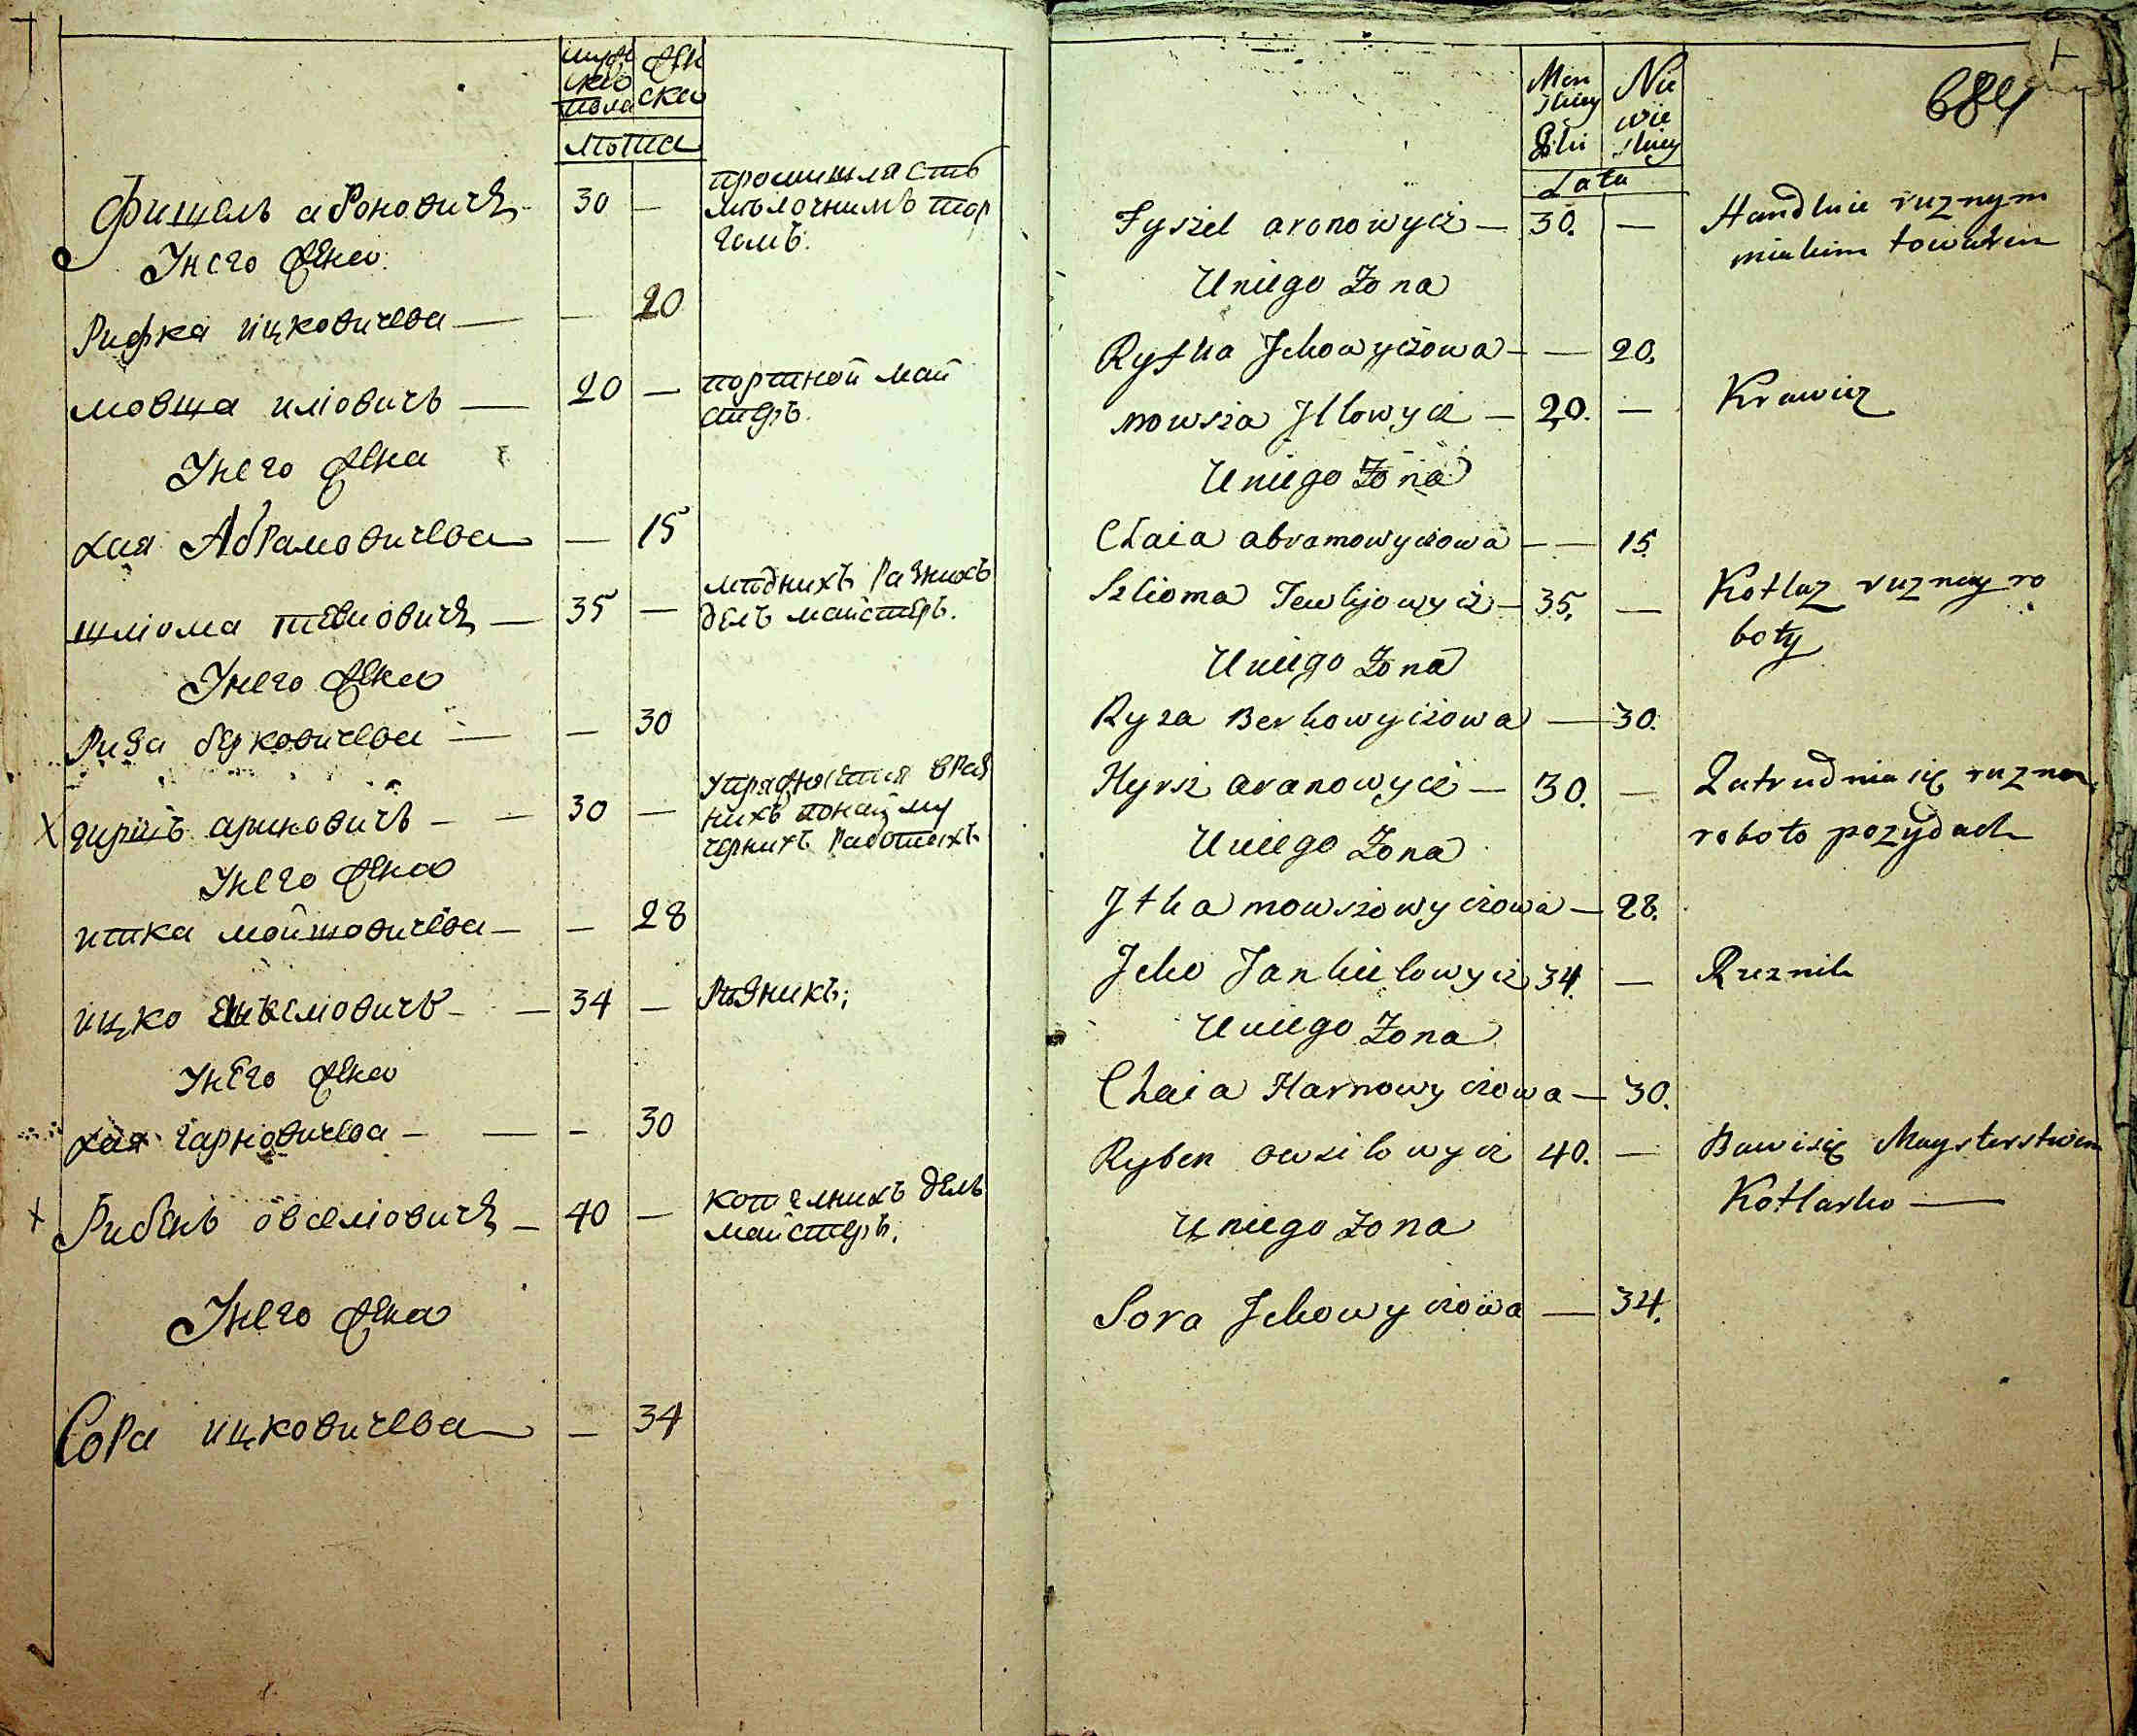 муж
ско
пола
жен
ска
лѣта
Фишель ароновичъ - 30 —
промишляетъ
мѣлочнимъ тор
гомъ.
Унего жена
Рифка ицковичева — — 20
мовша иліовичъ — 20 —
портной май
стеръ.
Унего жена
хая Абрамовичева — 15
шліома тевиовичъ — 35 —
мѣднихъ разнихъ
делъ майстеръ.
Унего жена
Риза берковичева — — 30
X гиршъ ароновичъ — — 30 —
упражняется враз
нихъ понайму
чернихъ работахъ
Унего жена
итка мойшовичева — — 28
ицко Янкеліовичъ — — 34 —
Рѣзникъ;
Унего жена
хая гарновичева — — - 30
X Рибенъ овселіовичъ — 40 —
котелнихъ делъ
майстеръ;
Унего жена
Сора ицковичева — 34
684
Men
skiey
Płci
Nie
wie
skiey
Lata
Fyszel aronowycz — 30. —
Handluie ruznym
mialkim towarem
Uniego Zona
Ryfka Jckowyczowa — — 20.
mowsza Jllowycz — 20. —
Krawiez
Uniego Zona
Chaia abramowyczowa — — 15.
Szlioma Tewljowycz — 35. —
Kotlaz ruzney ro
boty
Uniego Zona
Ryza Berkowyczowa — 30.
Hyrsz aranowycz — 30. —
Zatrudnia się ruzno
roboto pozydach
Uniego Zona
Jtka mowszowyczowa — 28.
Jcko Jankielowycz 34. —
Rzeznik
Uniego Zona
Chaia Harnowyczowa — 30.
Ryben owsilowycz 40. —
Bawisię Maysterstwem
Kotlarko —
Uniego zona
Sora Jckowyczowa — 34.